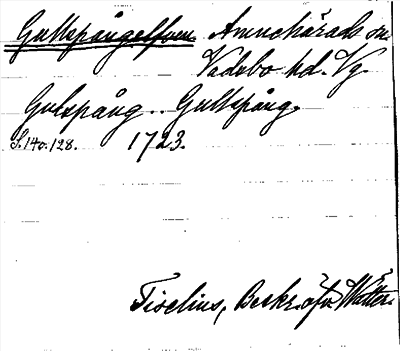 Gullspångelfven Amnehärads sn
Vadsbo hd. Vg.
Gulspång .. Gullspång.
S. 140. 128. 1723.
Tiselius, Beskr. öfv. Wätter.